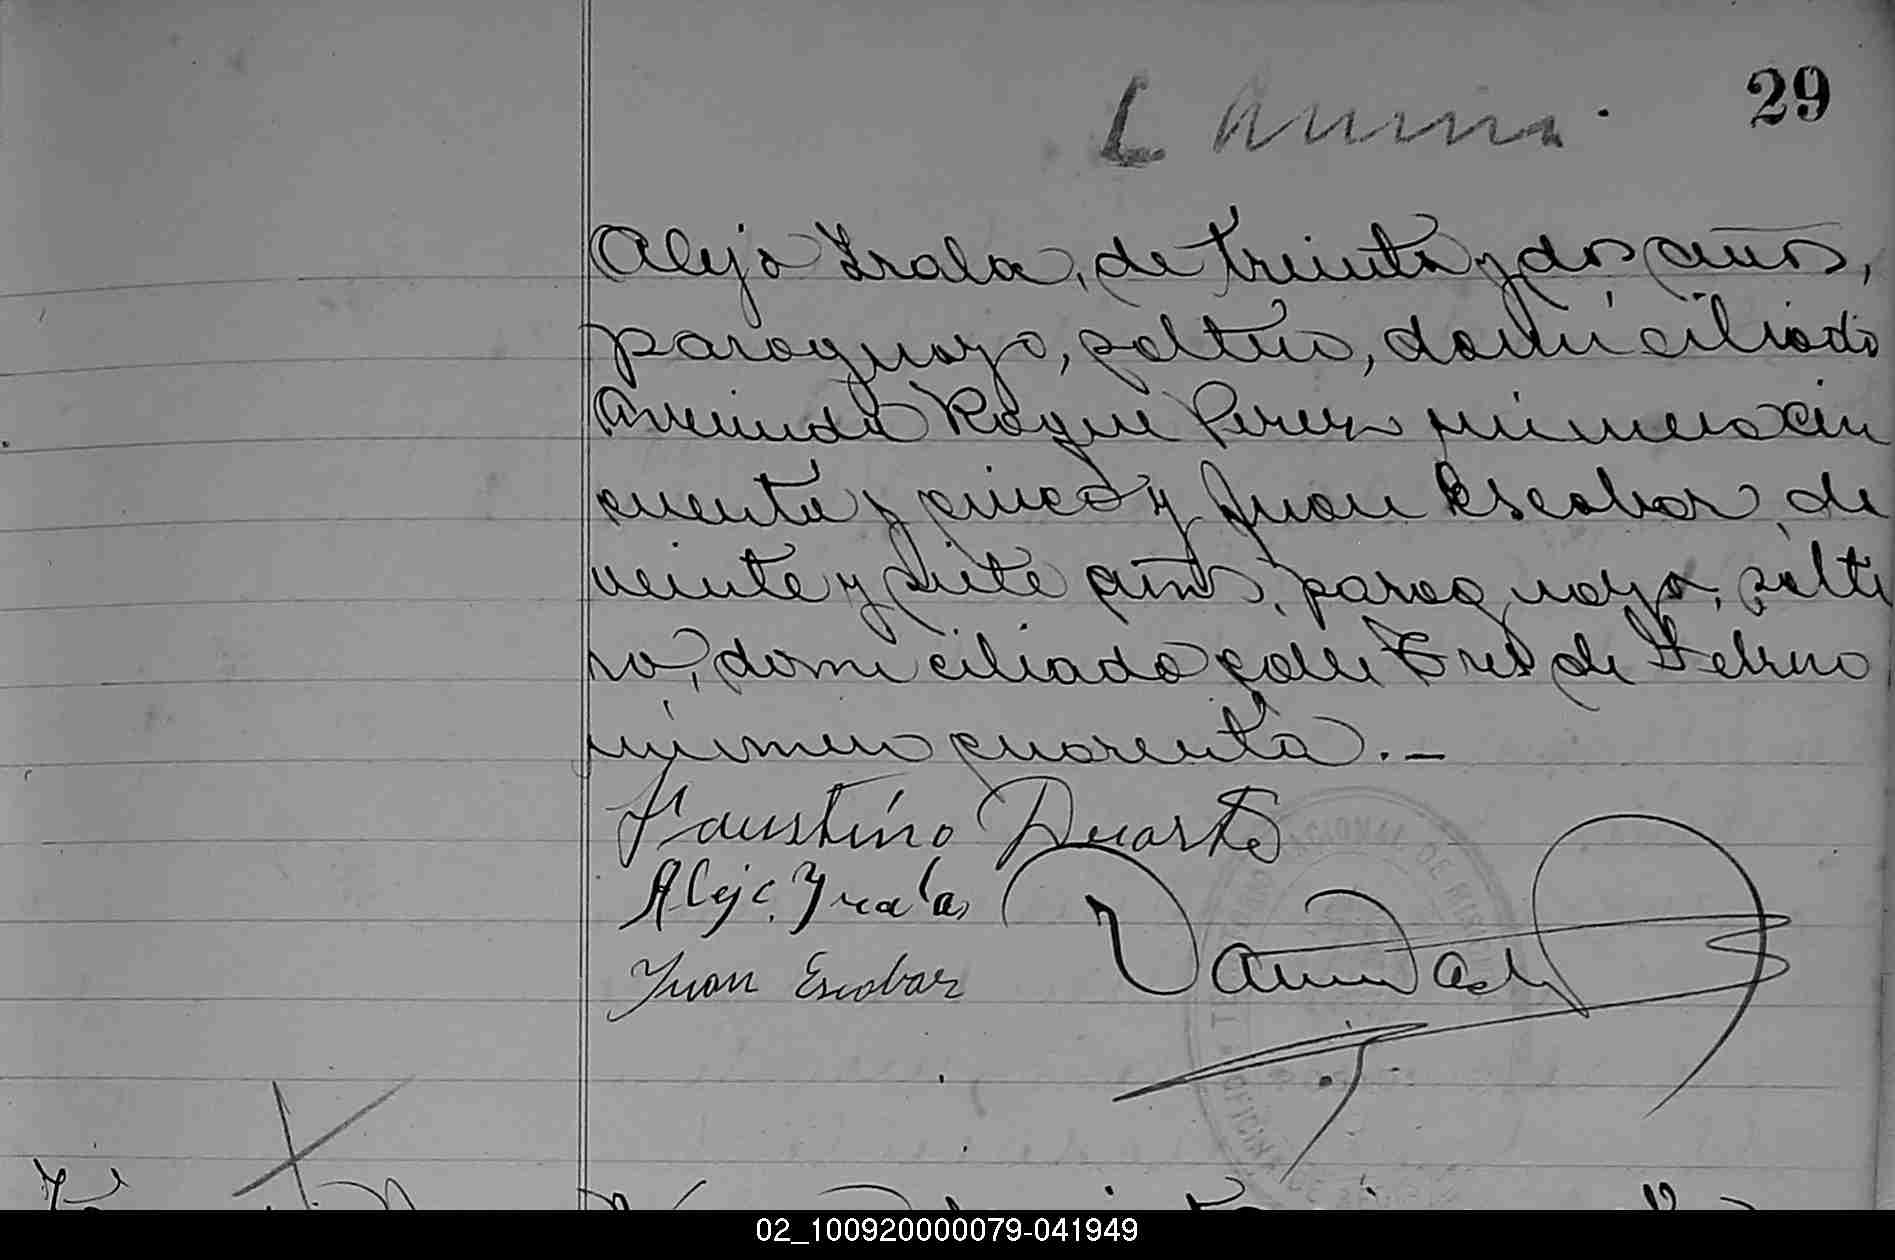 29
Alejo Irala, de treinta y dos años,
paraguayo, soltero, domiciliado
Avenida Roque Perez número cin
cuenta y cinco y Juan Escobar, de
veinte y siete años, paraguayo, solte
ro, domiciliado calle Tres de Febrero
número cuarenta.—
Faustino Duarte
Alejo Yrala
Juan Escobar
02_100920000079-041949